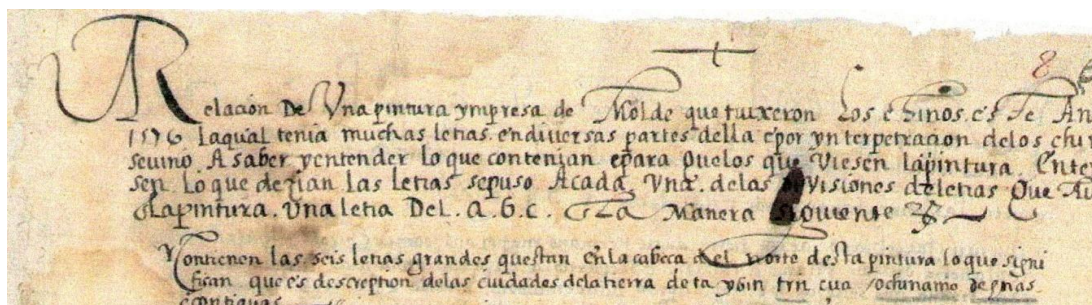 Relación De Una pintura ympresa de Molde que tuxeron Los chinos. este An
1576 laqual tenia muchas letras. endiversas partes della epor ynterpetracion delos chi
sevino A saber yentender lo que contenian epara Quelos que Viesen lapintura. Ente
sen lo que dezian las letras sepuso Acada Una. delas divisiones deletras Que
lapintura. Una letra Del. a. b. c. Manera siguiente
Contienen las seis letras grandes questan enlacabeca del norte desta pintura loque signi
fican que es descreption delas ciudades delatierra de
contiguas